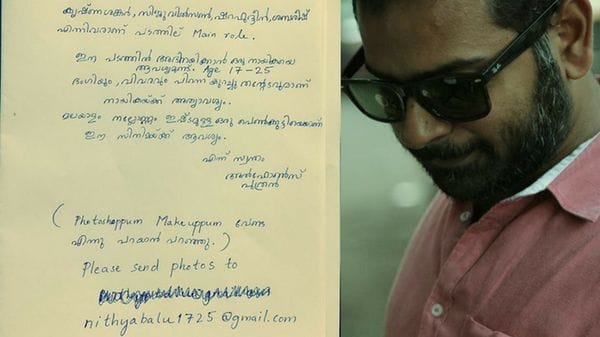 കൃഷ്ണശങ്കർ, സിജു വിൽസൺ, ഷറഫുദ്ദീൻ, ശബരീഷ്
എന്നിവരാണ് പടത്തില് Main role.
ഈ പടത്തിൽ അഭിനയിക്കാൻ ഒരു നായികയെ
ആവശ്യമുണ്ട്. Age 17-25
ഭംഗിയും, വിവരവും പിന്നെ കുറച്ചു തന്റേടവുമാണ്
നായികയ്ക്ക് അത്യാവശ്യം.
മലയാളം നല്ലോണം ഇഷ്ടമുള്ള ഒരു പെൺകുട്ടിയെയാണ്
ഈ സിനിമയ്ക്ക് ആവശ്യം.
എന്ന് സ്വന്തം
അൽഫോൺസ്
പുത്രൻ
( Photoshoppum Makeuppum വേണ്ട
എന്നു പറയാൻ പറഞ്ഞു. )
Please send photos to
nithyabalu1725@gmail.com
Ray-Ban